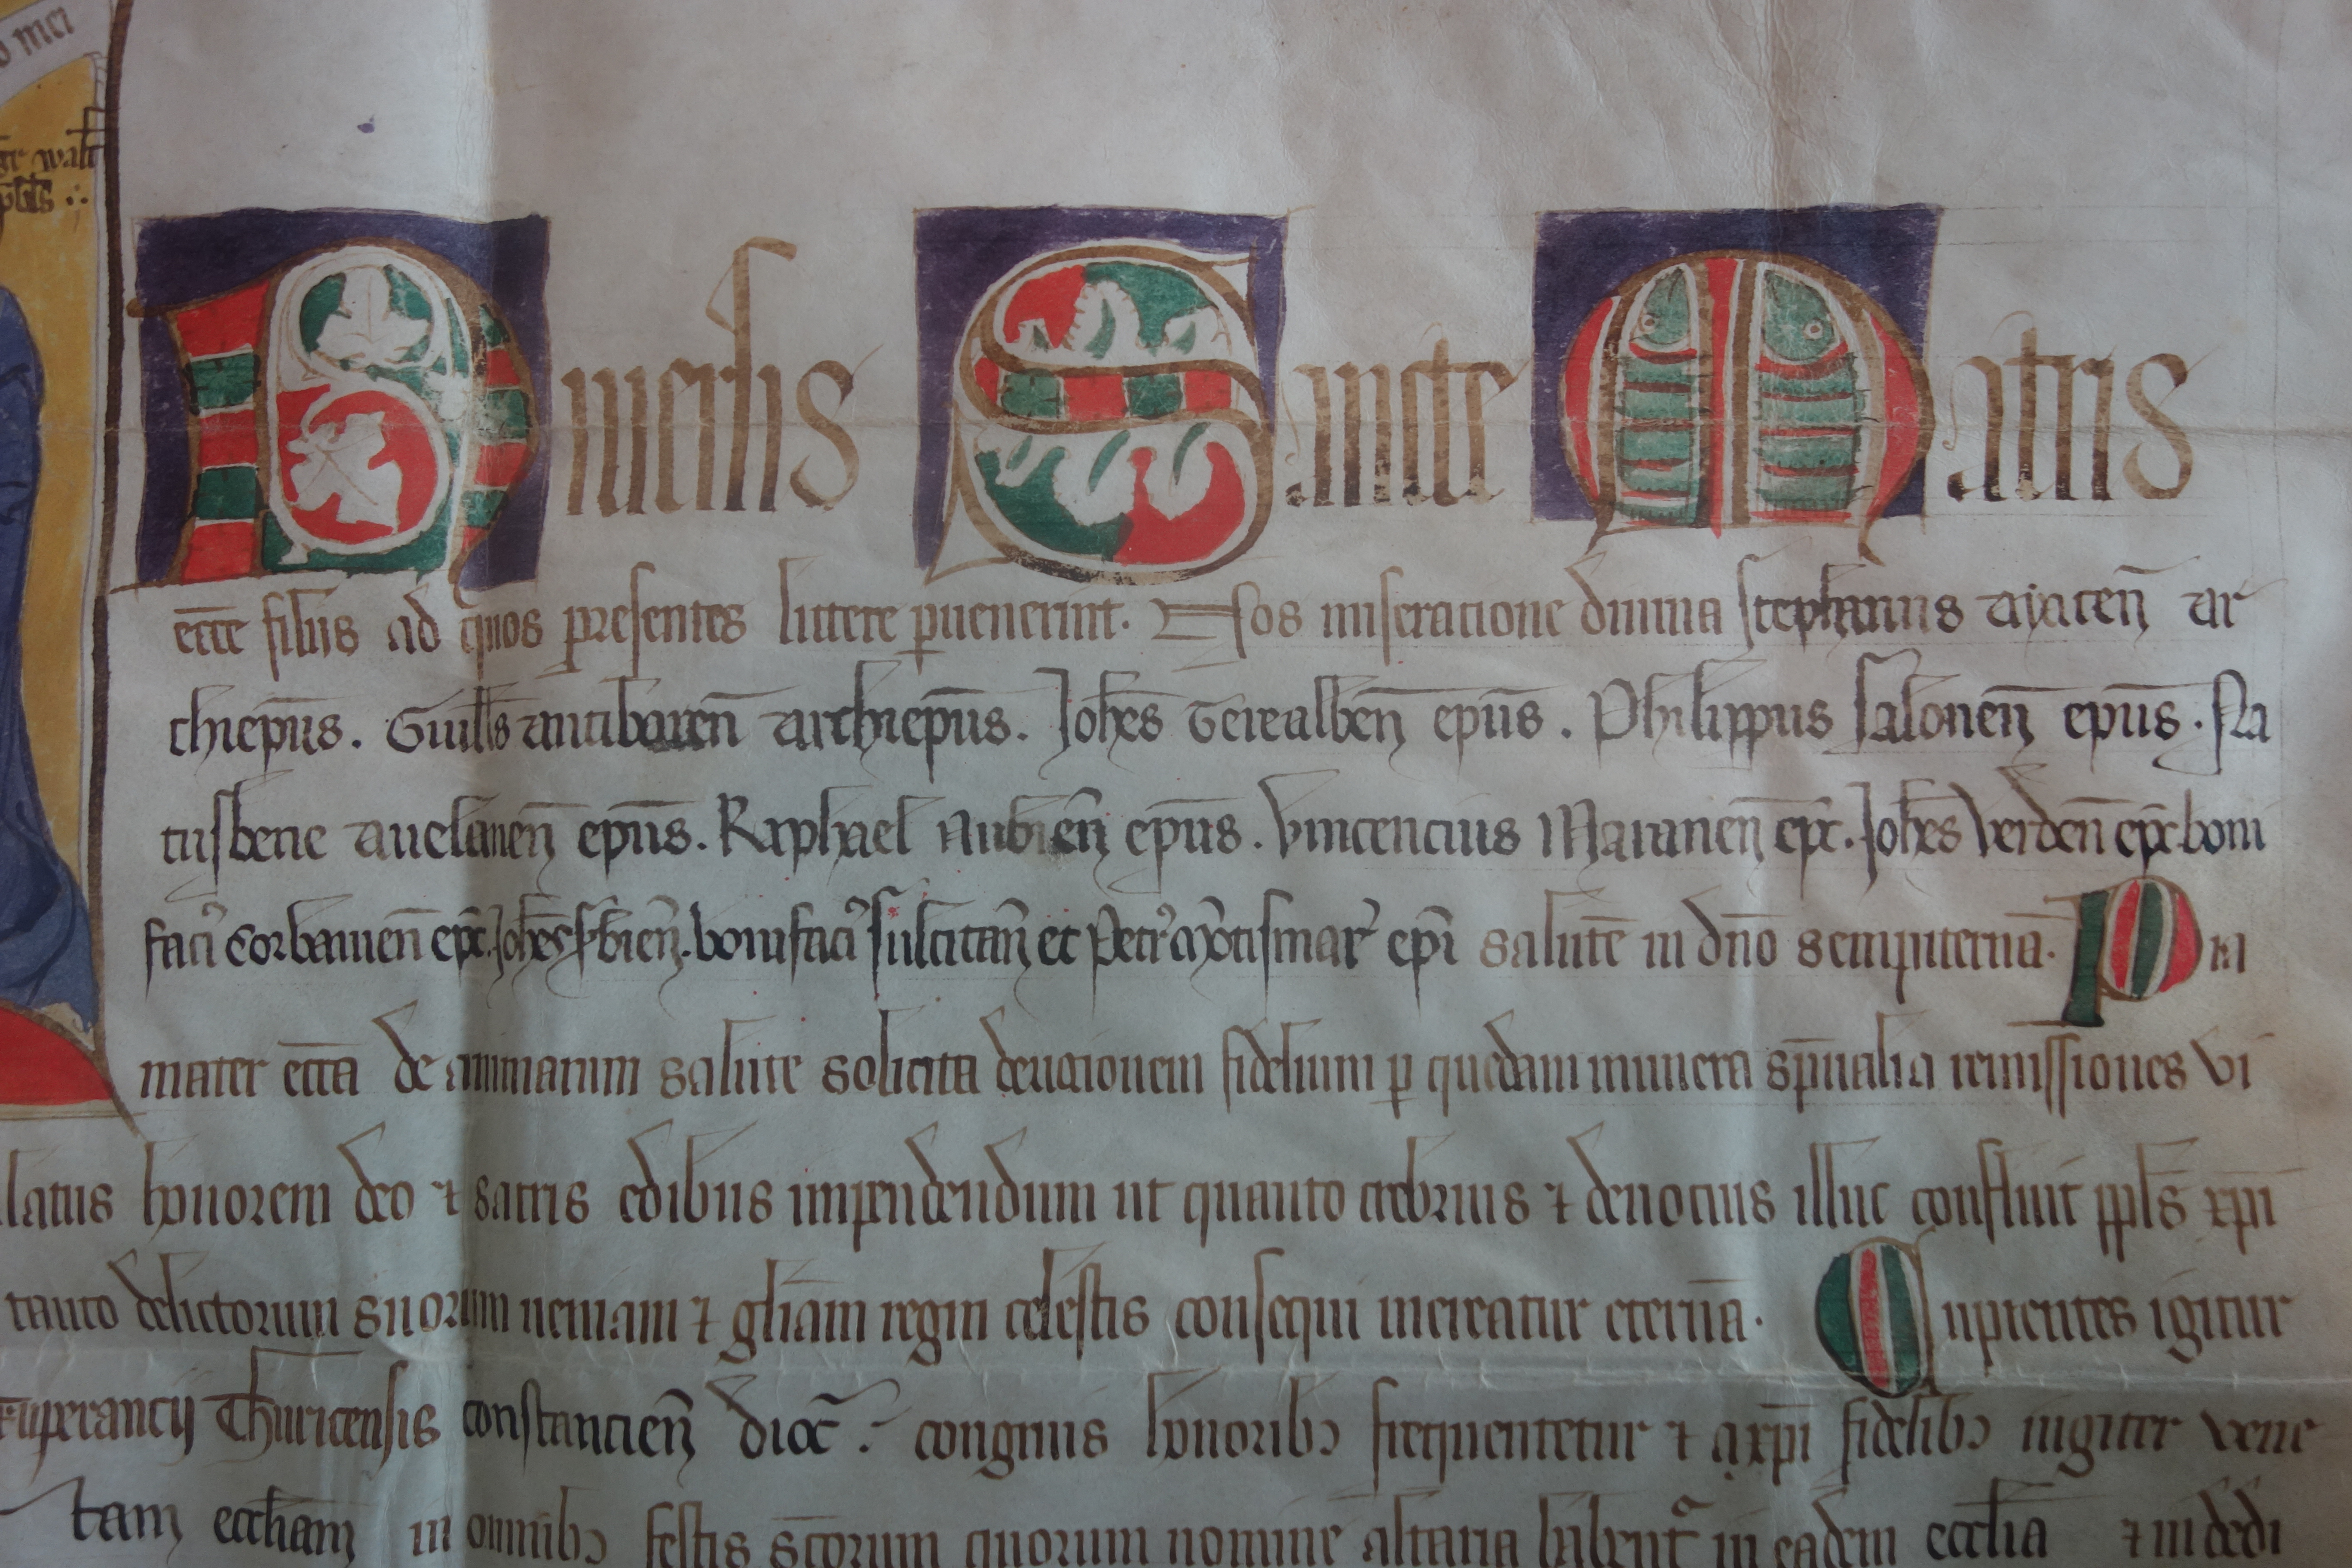 o mei
walt
Universis Sancte Matris
ecc̄e filiis ad quos presentes littere pervenerint. Nos miseratione divina stephanus ayacen̄ ar
chiep̄us. Guill̄s antibaren̄ archiep̄us. Joh̄es Terealben̄ ep̄us. Philippus salonen̄ ep̄us. Na
tusbene avelanen̄ ep̄us. Raphael Nubien̄ ep̄us. Vincencius Maranen̄ ep̄c. Joh̄es Verden̄ ep̄c boni
faci᾽ Corbanien̄ ep̄c. Joh̄es bien̄. bonifaci᾽ sulcitan̄ et Petr᾽ Mōtismar᾽ ep̄i salutē in dn̄o sempiternā. Pia
mater ecc̄a de animarum salute solicita devocionem fidelium p quedam munera sp̄ualia remissiones vi
latus honorem deo ⁊ sacris edibus impendendum ut quanto crebrius ⁊ devocius illuc confluit ppl̄s xp̄i
tanto delictorum suorum veniam ⁊ gl̄iam regni celestis consequi mereatur eternā. Cupientes igitur
xuperancij Thuricensis constancien̄ dioc̄. congruis honorib᾽ frequentetur ⁊ a xp̄i fidelib᾽ iugiter vene
tam eccl̄iam in omnib᾽ festis sc̄orum quorum nomine altaria habent᾽ in eadem eccl̄ia ⁊ in dedi